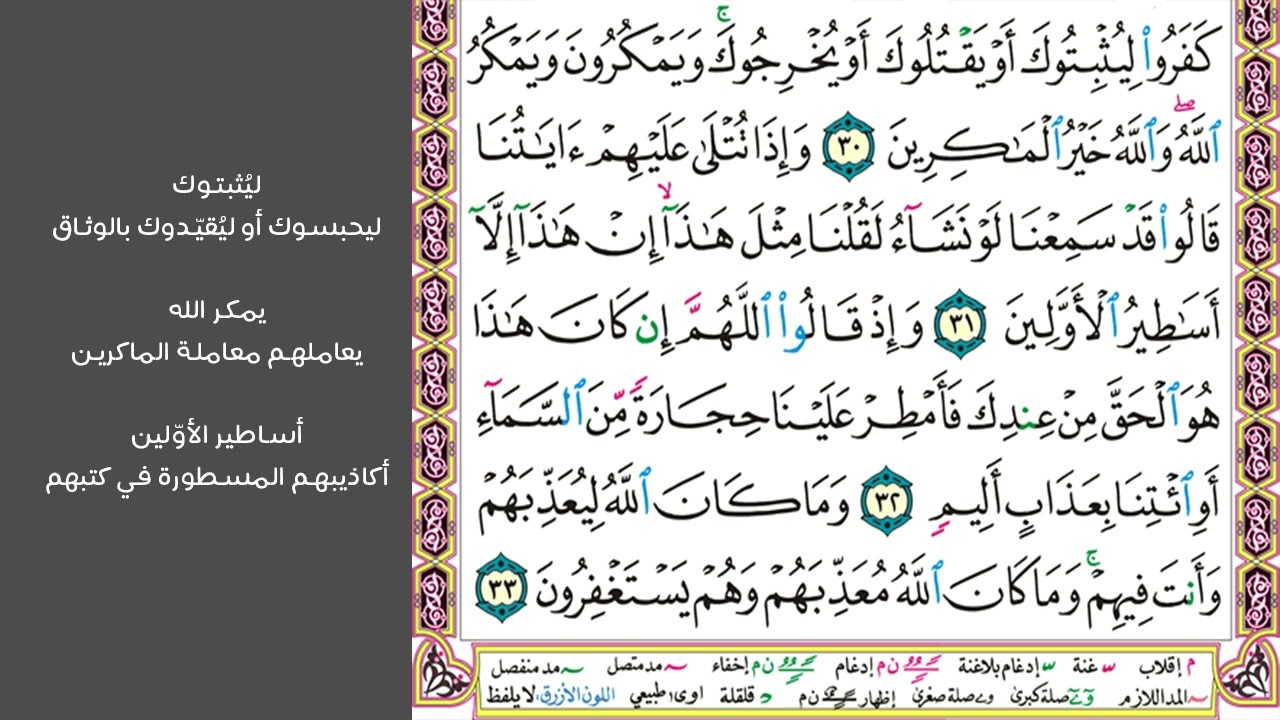 كَفَرُوا۟ لِيُثْبِتُوكَ أَوْ يَقْتُلُوكَ أَوْ يُخْرِجُوكَ ۚ وَيَمْكُرُونَ وَيَمْكُرُ
ٱللَّهُ ۖ وَٱللَّهُ خَيْرُ ٱلْمَـٰكِرِينَ ٣٠ وَإِذَا تُتْلَىٰ عَلَيْهِمْ ءَايَـٰتُنَا
قَالُوا۟ قَدْ سَمِعْنَا لَوْ نَشَآءُ لَقُلْنَا مِثْلَ هَـٰذَآ ۙ إِنْ هَـٰذَآ إِلَّآ
أَسَـٰطِيرُ ٱلْأَوَّلِينَ ٣١ وَإِذْ قَالُوا۟ ٱللَّهُمَّ إِن كَانَ هَـٰذَا
هُوَ ٱلْحَقَّ مِنْ عِندِكَ فَأَمْطِرْ عَلَيْنَا حِجَارَةً مِّنَ ٱلسَّمَآءِ
أَوِ ٱئْتِنَا بِعَذَابٍ أَلِيمٍ ٣٢ وَمَا كَانَ ٱللَّهُ لِيُعَذِّبَهُمْ
وَأَنتَ فِيهِمْ ۚ وَمَا كَانَ ٱللَّهُ مُعَذِّبَهُمْ وَهُمْ يَسْتَغْفِرُونَ ٣٣
م إقلاب س غنة س إدغام بلاغنة ن م إدغام ن م إخفاء مد متصل مد منفصل
المد اللازم صلة كبرى صلة صغرى إظهار ن م د قلقلة اوى طبيعي اللون الأزرق لا يلفظ
ليُثبتوك
ليحبسوك أو ليُقيّدوك بالوثاق
يمكر الله
يعاملهم معاملة الماكرين
أساطير الأوّلين
أكاذيبهم المسطورة في كتبهم